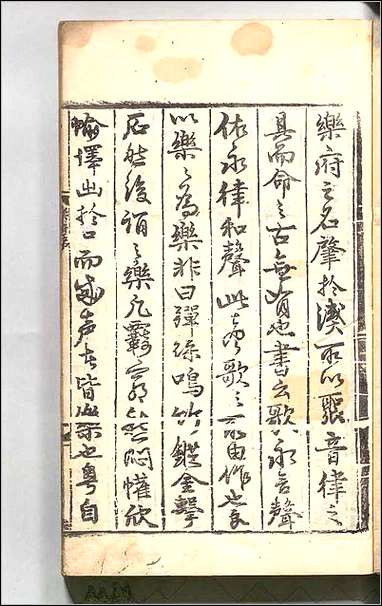 樂府之名肇於漢所以聚音律之
具而命之古無有也書云歌以永言聲
依永律和聲此即歌之所由作也豈
以樂之為樂非曰彈絲鳴竹鏦金擊
石然後謂之樂凡羈窮愁悶懽欣
愉懌出於口而成声者皆樂也粤自